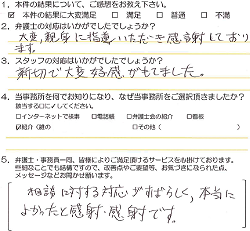 1. 本件の結果について、ご感想をお教え下さい。
☑本件の結果に大変満足 □満足 □普通 □不満
2. 弁護士の対応はいかがでしたでしょうか?
大変、親身に指導いただき感謝しております。
3. スタッフの対応はいかがでしたでしょうか?
親切で大変好感がもてました。
4. 当事務所を何でお知りになり、なぜ当事務所をご選択頂きましたか?
該当する□に✓してください。
□インターネットで検索 □電話帳 □弁護士会の紹介 □看板
☑紹介(親の □その他( )
5. 弁護士・事務員一同、皆様によりご満足頂けるサービスを心掛けております。
些細なことでも結構ですので、改善点やご要望等、お気づきになられた点、
メッセージなどお聞かせ願います。
相談に対する対応がすばらしく、本当に
よかったと感謝・感謝です。